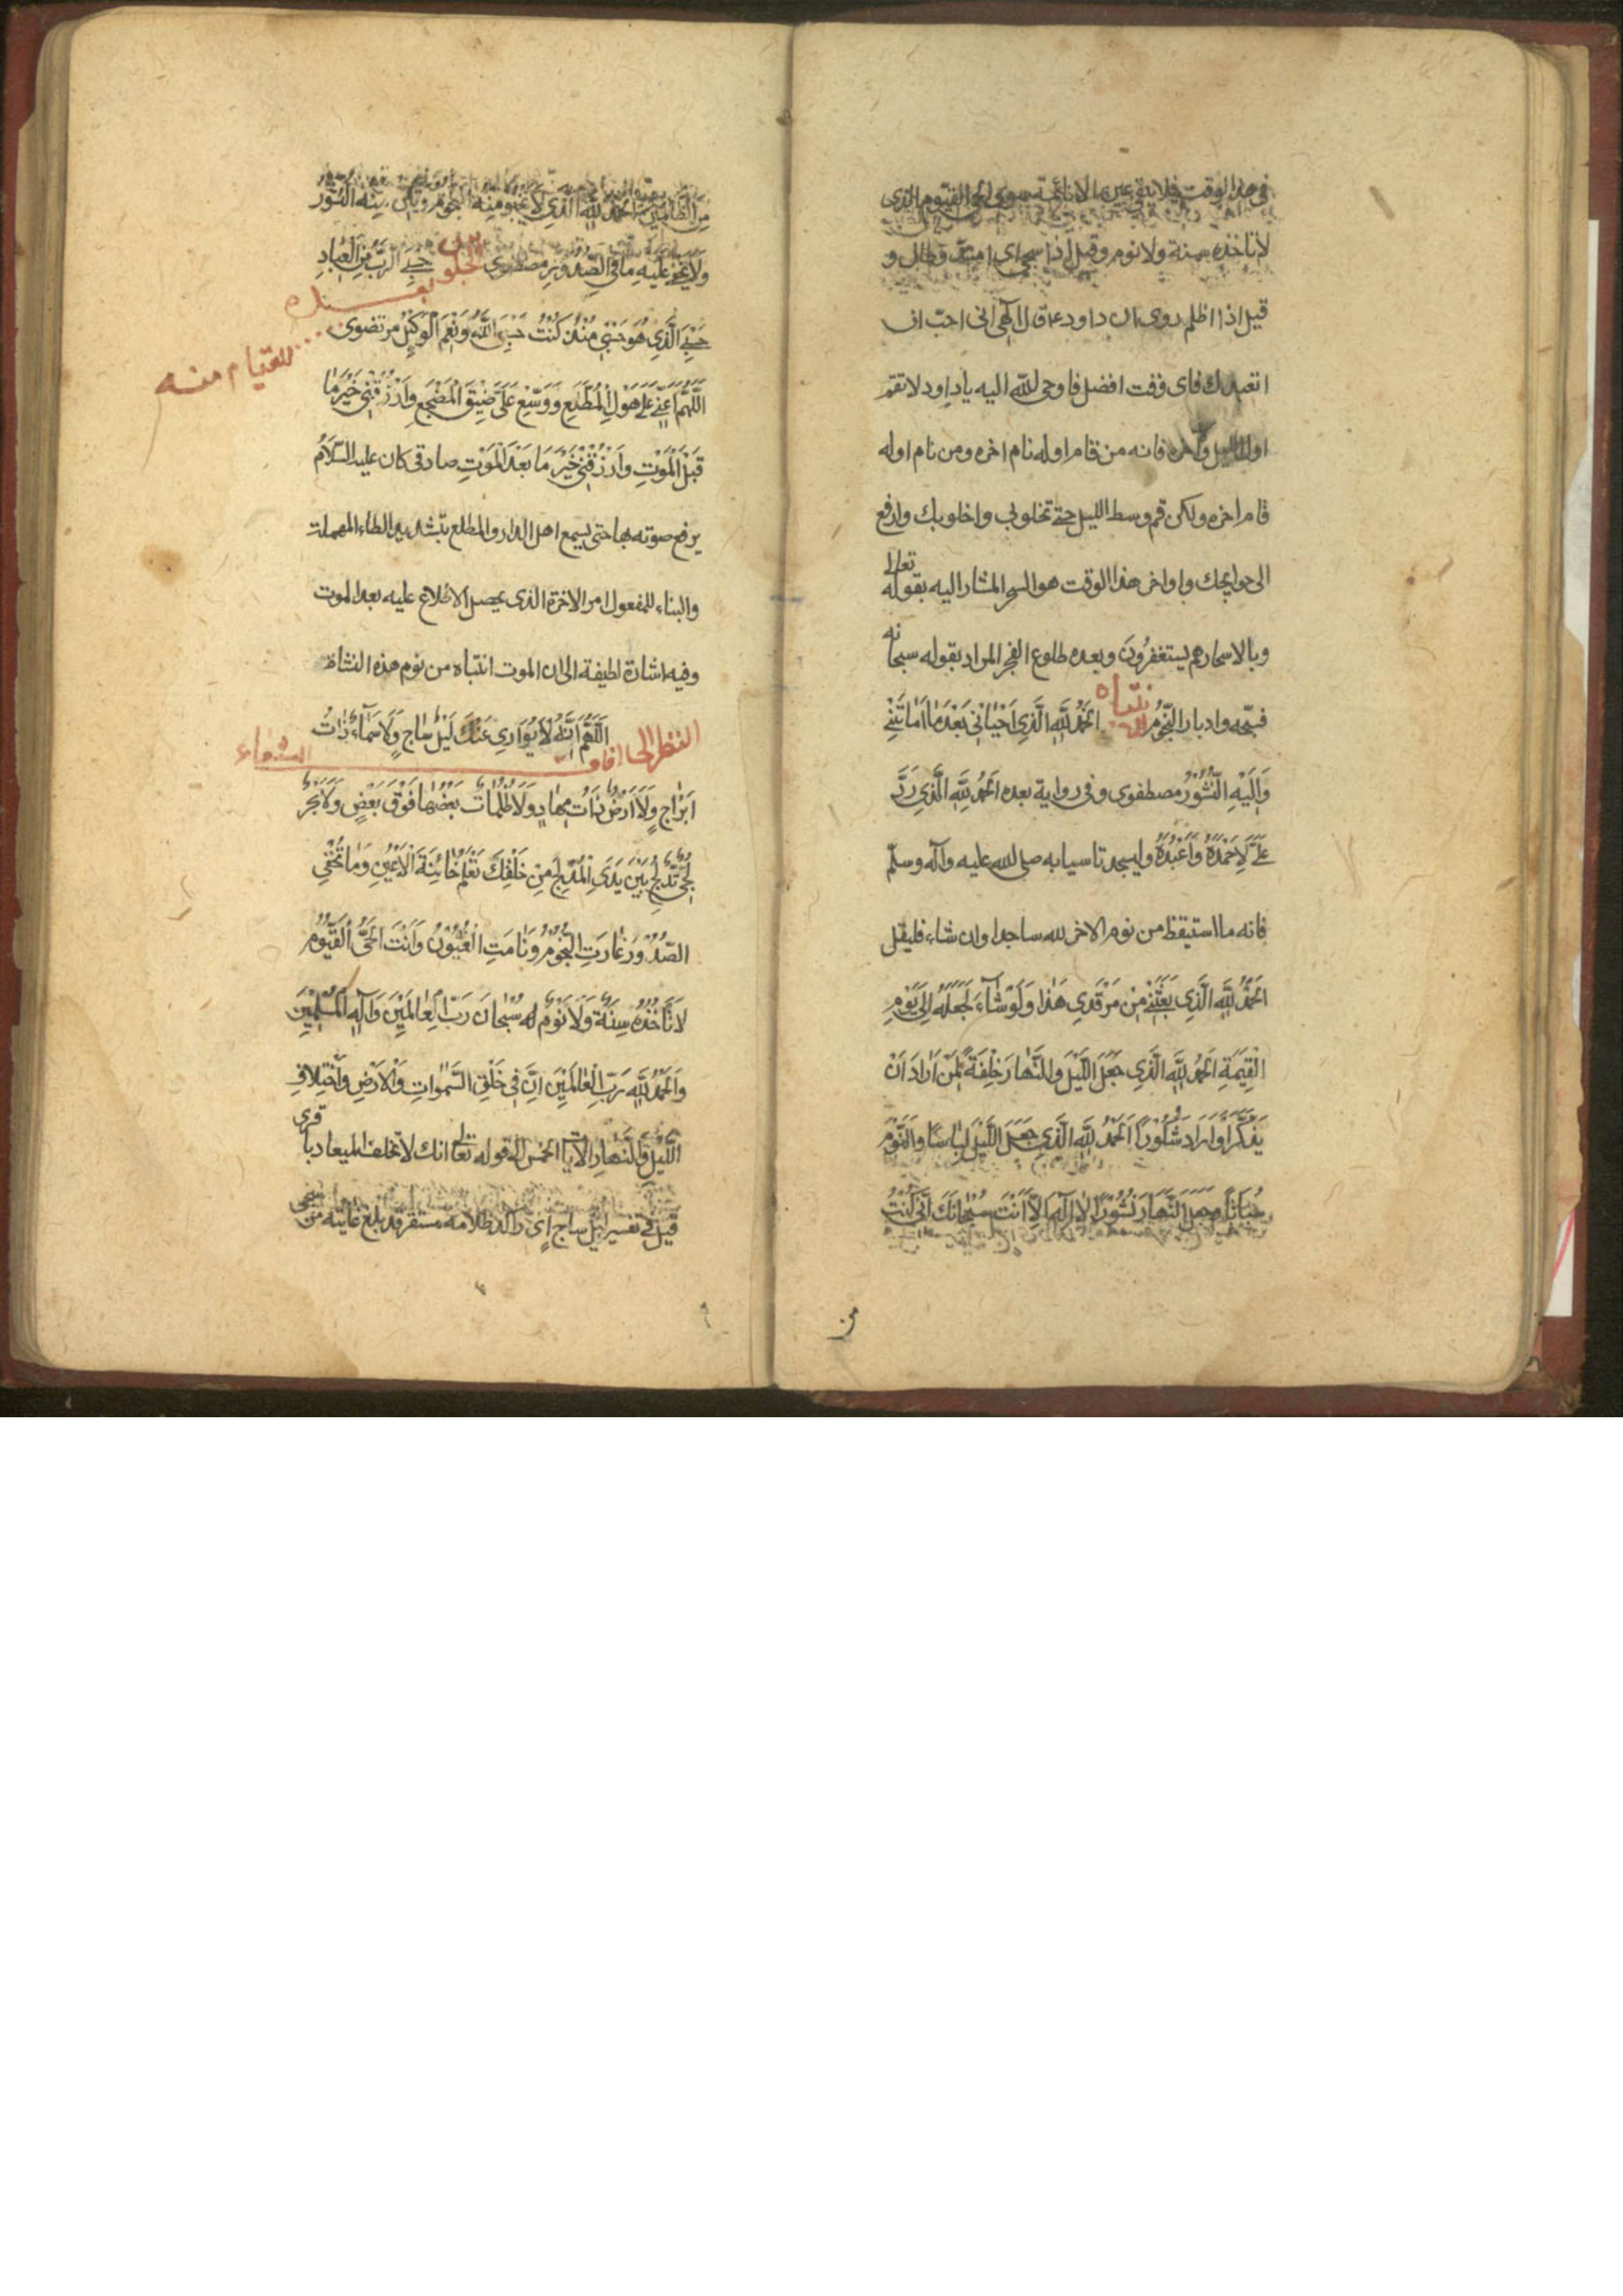 في هذا الوقت فلا يبقى عين الا نائمة سوى الحي القيوم الذي
لا تاخذه سنة ولا نوم وقيل اذا سجى اي امتد وطال و
قيل اذا اظلم روى ان داود ع قال الهي اني احب ان
اتعبد لك فاى وقت افضل فاوحى الله اليه يا داود لا تقم
اول الليل واخره فانه من قام اوله نام اخره ومن نام اوله
قام اخره ولكن قم وسط الليل حتى تخلو بي واخلو بك وارفع
الى حوايجك واواخر هذا الوقت هو السحر المشار اليه بقوله تعالى
وبالاسحار هم يستغفرون وبعده طلوع الفجر المراد بقوله سبحانه
فسبحه وادبار النجوم الانتباه اَلْحَمْدُ لِلّٰهِ الَّذِي اَحْيَانِي بَعْدَ مَا اَمَاتَنِي
وَاِلَيْهِ النُّشُوْرُ مصطفوى وفي رواية بعده اَلْحَمْدُ لِلّٰهِ الَّذِي رَدَّ
عَلَيَّ لِاَحْمَدَهُ وَاَعْبُدَهُ وليسجد تاسيا به صلى الله عليه وآله وسلم
فانه ما استيقظ من نوم الا خر لله ساجدا وان شاء فليقل
اَلْحَمْدُ لِلّٰهِ الَّذِي بَعَثَنِي مِنْ مَرْقَدِي هٰذَا وَلَوْ شَاءَ لَجَعَلَهُ اِلَى يَوْمِ
الْقِيٰمَةِ اَلْحَمْدُ لِلّٰهِ الَّذِي جَعَلَ اللَّيْلَ وَالنَّهَارَ خِلْفَةً لِمَنْ اَرَادَ اَنْ
يَذَّكَّرَ اَوْ اَرَادَ شُكُوْرًا اَلْحَمْدُ لِلّٰهِ الَّذِي جَعَلَ اللَّيْلَ لِبَاسًا وَالنَّوْمَ
سُبَاتًا وَجَعَلَ النَّهَارَ نُشُوْرًا لَا اِلٰهَ اِلَّا اَنْتَ سُبْحَانَكَ اِنِّي كُنْتُ
من
مِنَ الظَّالِمِيْنَ اَلْحَمْدُ لِلّٰهِ الَّذِي لَا تَخْبُو مِنْهُ النُّجُوْمُ
وَلَا يَخْفَى عَلَيْهِ مَا فِي الصُّدُوْرِ مصطفوى الجلوس بعده حَسْبِيَ الرَّبُّ مِنَ الْعِبَادِ
حَسْبِيَ الَّذِي هُوَ حَسْبِي مُنْذُ كُنْتُ حَسْبِيَ اللّٰهُ وَنِعْمَ الْوَكِيْلُ مرتضوى
للقيام منه
اَللّٰهُمَّ اَعِنِّي عَلَى هَوْلِ الْمُطَّلَعِ وَوَسِّعْ عَلَيَّ ضِيْقَ الْمَضْجَعِ وَارْزُقْنِي خَيْرَ مَا
قَبْلَ الْمَوْتِ وَارْزُقْنِي خَيْرَ مَا بَعْدَ الْمَوْتِ صادقى كان عليه السلام
يرفع صوته بها حتى يسمع اهل الدار والمطلع بتشديد الطاء المهملة
والبناء للمفعول امر الاخرة الذى يحصل الاطلاع عليه بعد الموت
وفيه اشارة لطيفة الى ان الموت انتباه من نوم هذه النشاة
النظر الى افاق السماء اَللّٰهُمَّ اِنَّهُ لَا يُوَارِي عَنْكَ لَيْلٌ سَاجٍ وَلَا سَمَاءٌ ذَاتُ
اَبْرَاجٍ وَلَا اَرْضٌ ذَاتُ مِهَادٍ وَلَا ظُلُمَاتٌ بَعْضُهَا فَوْقَ بَعْضٍ وَلَا بَحْرٌ
لُجِّيٌّ تُدْلِجُ بَيْنَ يَدَيِ الْمُدْلِجِ مِنْ خَلْقِكَ تَعْلَمُ خَائِنَةَ الْاَعْيُنِ وَمَا تُخْفِي
الصُّدُوْرُ غَارَتِ النُّجُوْمُ وَنَامَتِ الْعُيُوْنُ وَاَنْتَ الْحَيُّ الْقَيُّوْمُ
لَا تَأْخُذُهُ سِنَةٌ وَلَا نَوْمٌ سُبْحَانَ رَبِّ الْعَالَمِيْنَ وَاِلٰهِ الْمُسْلِمِيْنَ
وَالْحَمْدُ لِلّٰهِ رَبِّ الْعَالَمِيْنَ اِنَّ فِي خَلْقِ السَّمٰوَاتِ وَالْاَرْضِ وَاخْتِلَافِ
اللَّيْلِ وَالنَّهَارِ الايات الخمس الى قوله تعالى انك لا تخلف الميعاد باقرى
قيل في تفسير ليل ساج اى راكد ظلامه مستقر قد بلغ غايته من